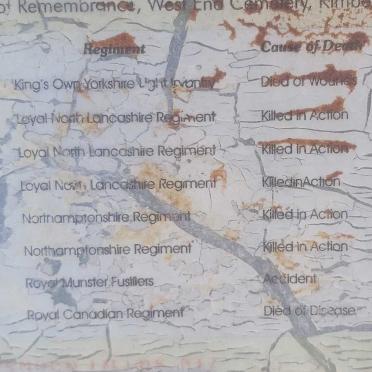 of Remembrance, West End Cemetery, Kimbe
Regiment Cause of Death
King's Own Yorkshire Light Infantry Died of Wounds
Loyal North Lancashire Regiment Killed in Action
Loyal North Lancashire Regiment Killed in Action
Loyal North Lancashire Regiment KilledinAction
Northamptonshire Regiment Killed in Action
Northamptonshire Regiment Killed in Action
Royal Munster Fusiliers Accident
Royal Canadian Regiment Died of Disease